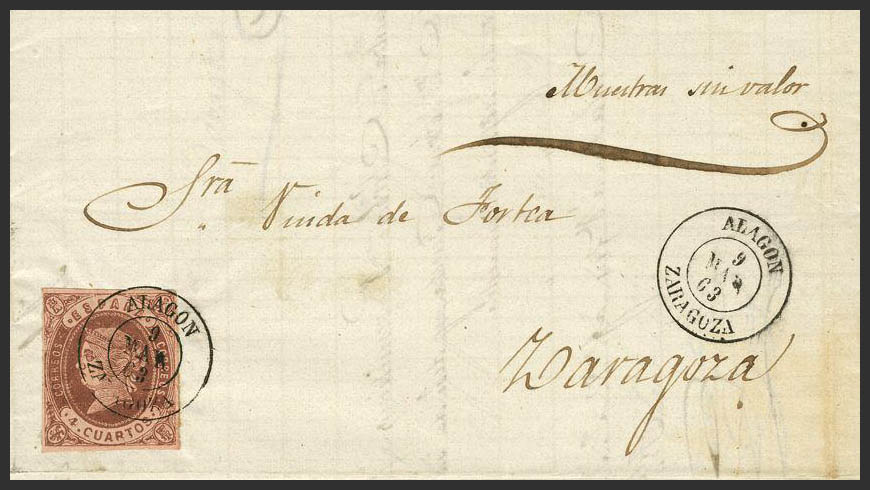 Muestras sin valor
Sra Viuda de Fortea
ALAGON
9
MAR
63
ZARAGOZA
Zaragoza
CORREOS ESPAÑA
4 CUARTOS
ALAGON
9
MAR
63
ZARAGOZA